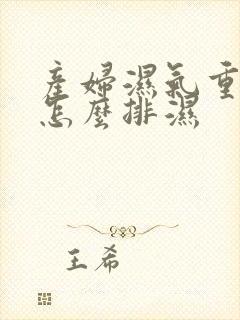 産婦濕氣重
怎麼排濕
王希